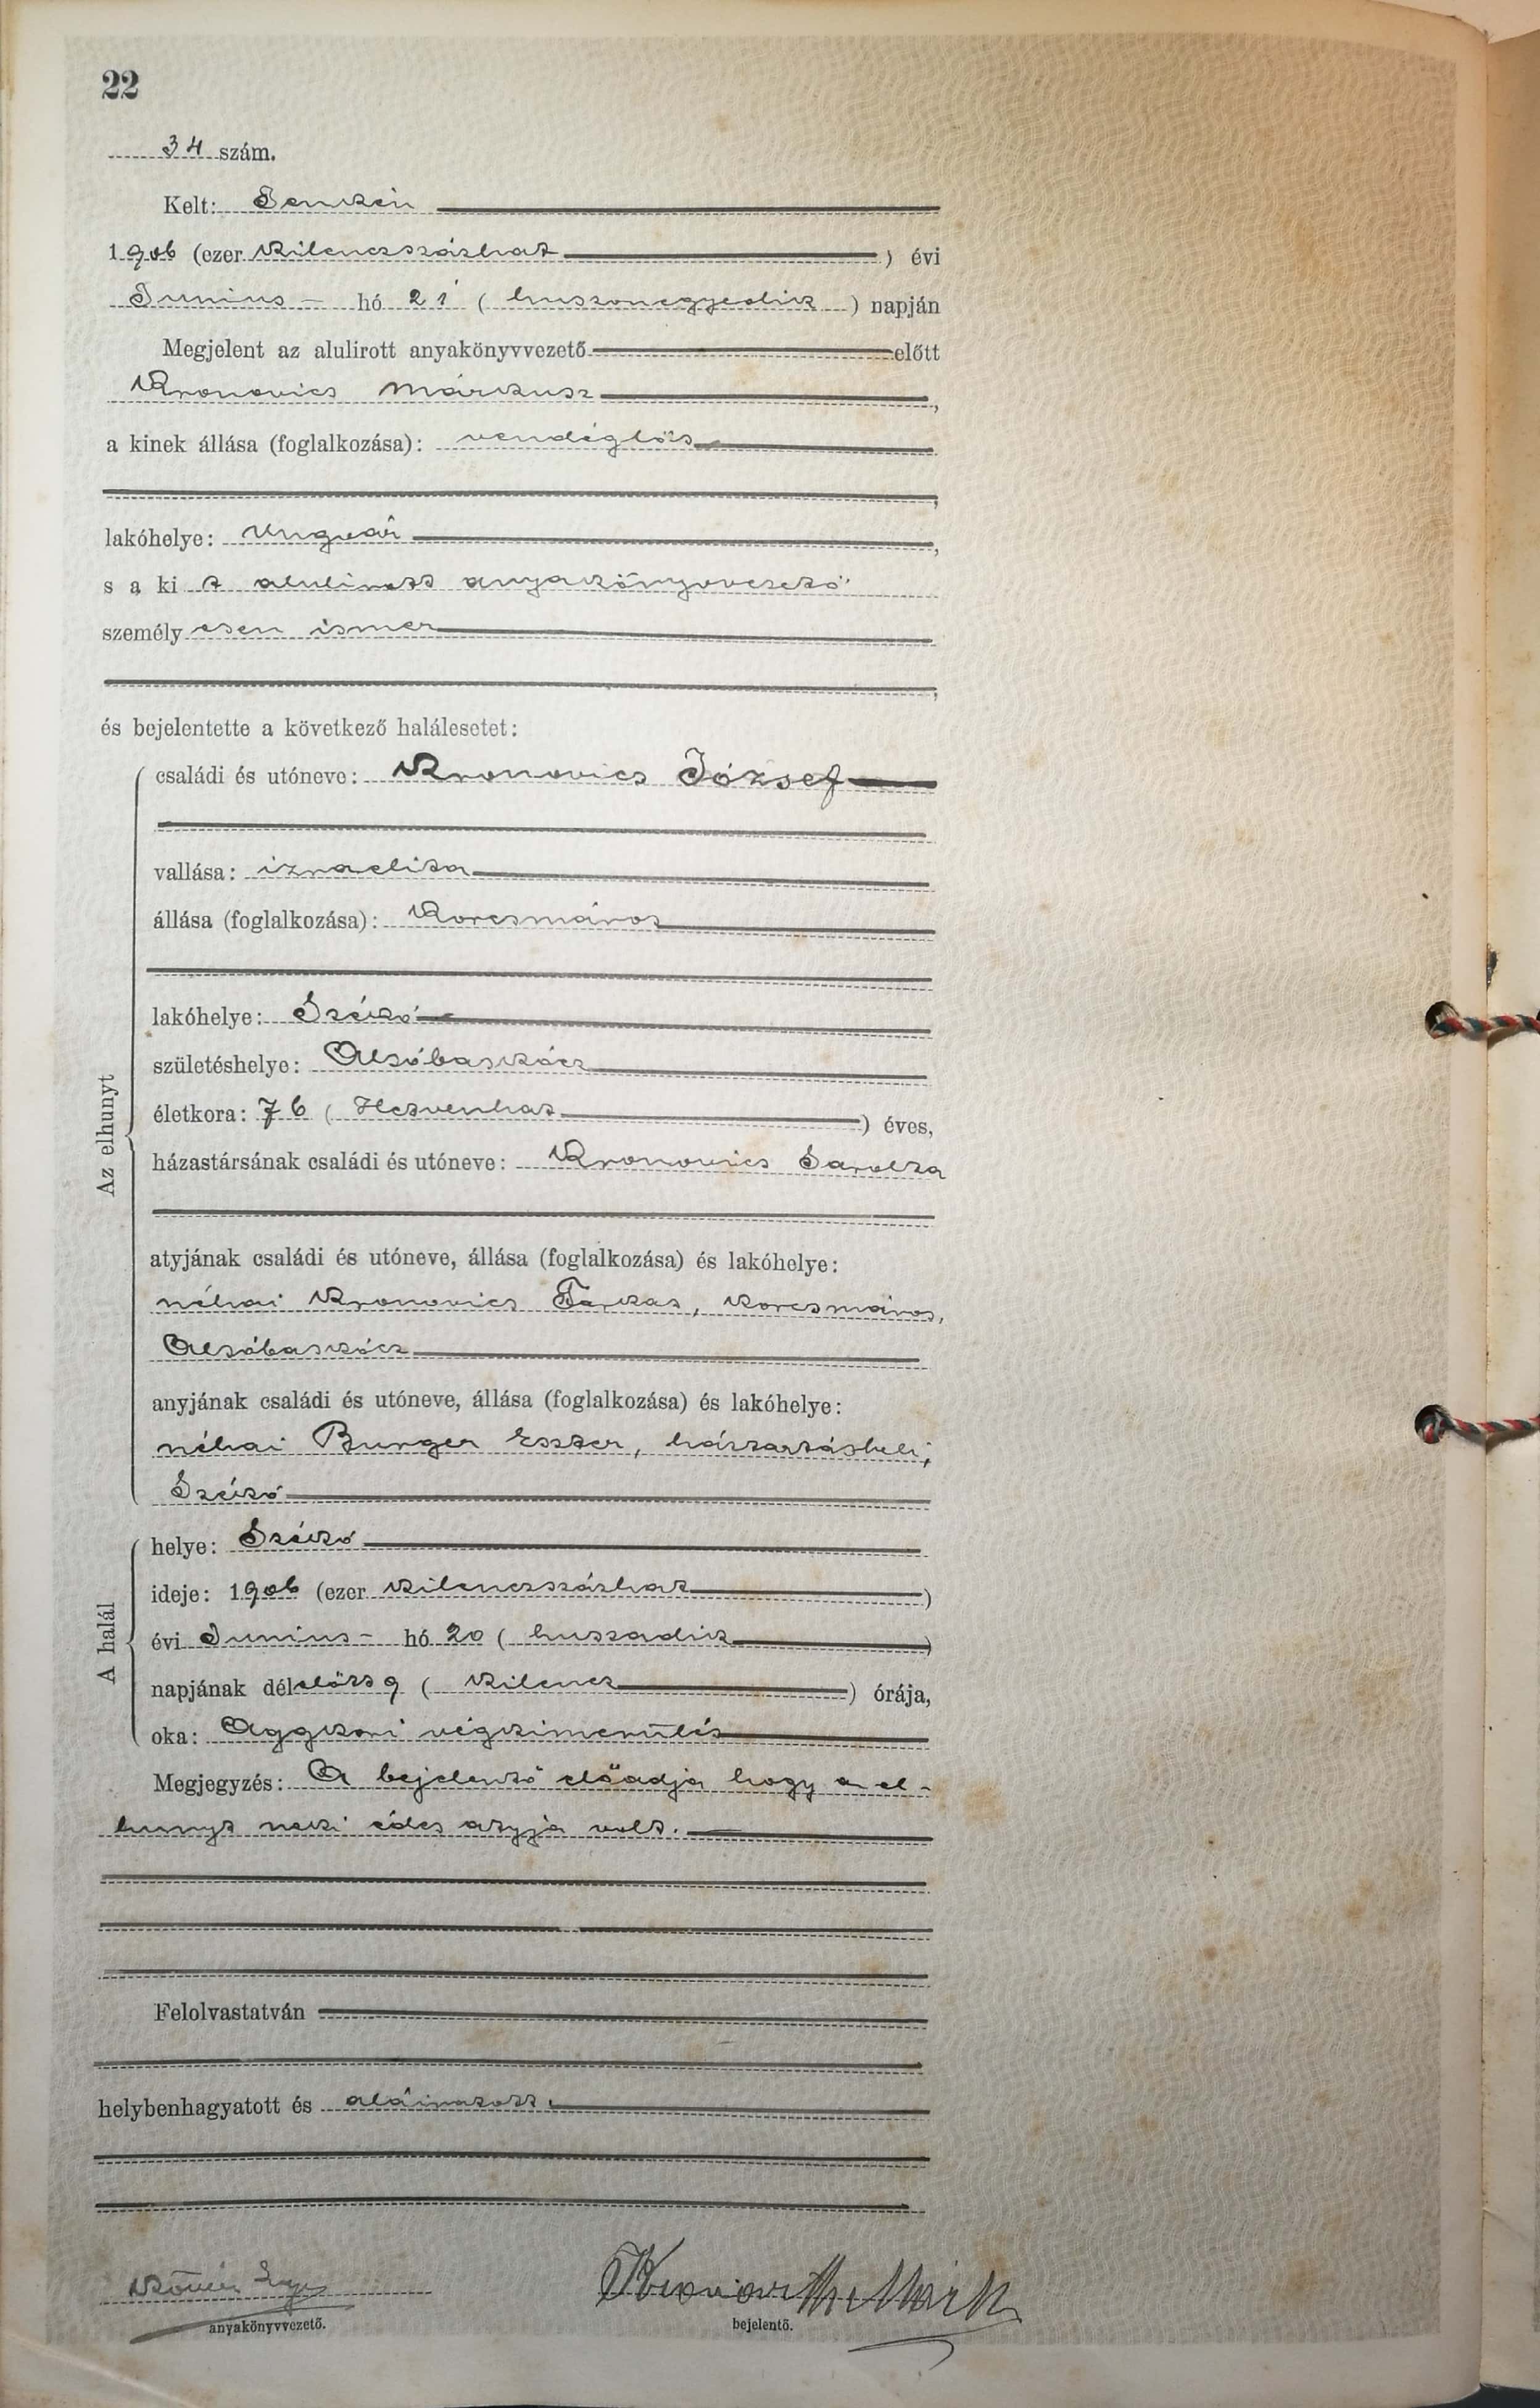 22
34 szám.
Kelt: Jenkén
1906 (ezer kilenczszázhat) évi
Junius hó 21 (huszonegyedik) napján
Megjelent az alulirott anyakönyvvezető előtt
Kronovics Márkusz,
a kinek állása (foglalkozása): vendéglős
lakóhelye: Ungvár,
s a kit alulirott anyakönyvvezető
személyesen ismer
és bejelentette a következő halálesetet:
Az elhunyt
családi és utóneve: Kronovics József
vallása: izraelita
állása (foglalkozása): Korcsmáros
lakóhelye:
születéshelye: Alsóbaskócz
életkora: 76 (Hetvenhat) éves,
házastársának családi és utóneve: Kronovics Sarolta
atyjának családi és utóneve, állása (foglalkozása) és lakóhelye:
néhai Kronovics Farkas, korcsmáros,
Alsóbaskócz
anyjának családi és utóneve, állása (foglalkozása) és lakóhelye:
néhai Burger Eszter, háztartásbeli,
A halál
helye:
ideje: 1906 (ezer kilenczszázhat)
évi Junius- hó 20 (huszadik)
napjának délelőtt 9 (kilencz) órája,
oka: Aggkori végkimerülés
Megjegyzés: A bejelentő előadja hogy a el-
hunyt neki édes atyja volt.
Felolvastatván
helybenhagyatott és aláiratott.
anyakönyvvezető.
bejelentő.